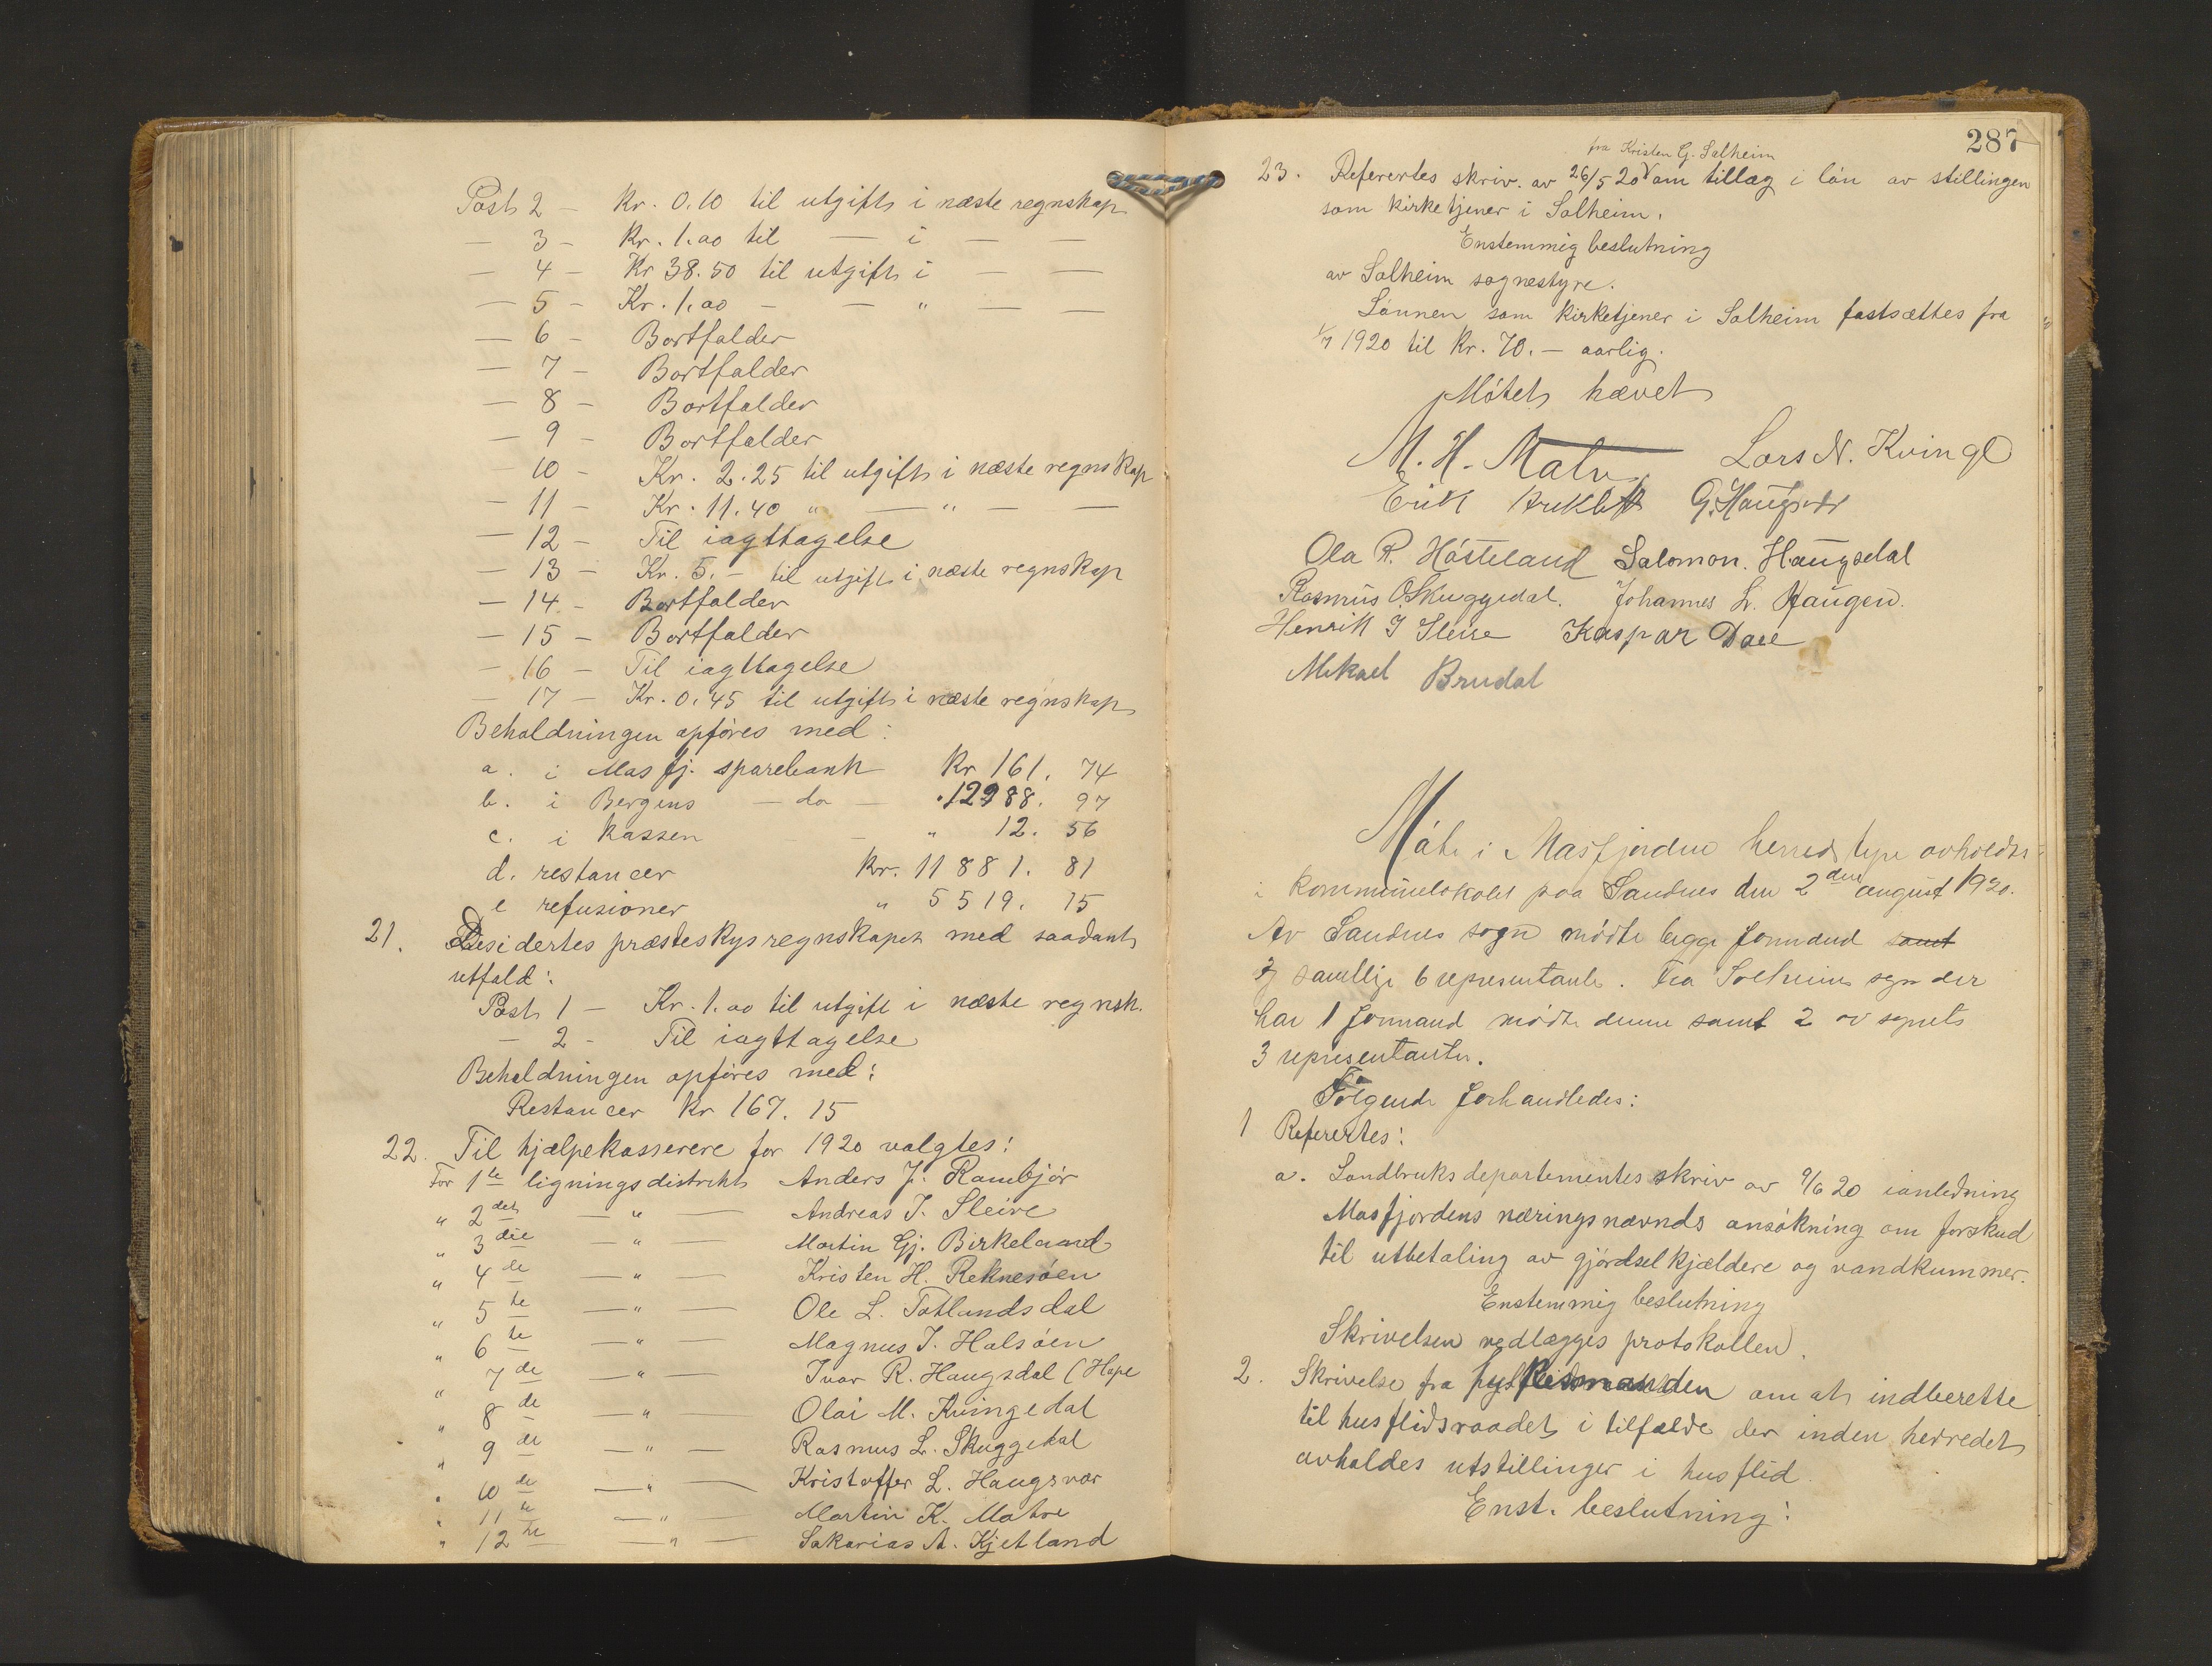 Post 2 - Kr. 0.10 til utgift i næste regnskap
— 3 - Kr. 1.00 til — i — —
— 4 - Kr 38.50 til utgift i — —
— 5 - Kr. 1.00 - — " — —
— 6 - Bortfalder
— 7 - Bortfalder
— 8 - Bortfalder
— 9 - Bortfalder
— 10 - Kr. 2.25 til utgift i næste regnskap
— 11 - Kr. 11.40 " — " — —
— 12 - Til iagttagelse
— 13 - Kr. 5.- til utgift i næste regnskap
— 14 - Bortfalder
— 15 - Bortfalder
— 16 - Til iagttagelse
— 17 - Kr. 0.45 til utgift i næste regnskap
Beholdningen opføres med:
a. i Masfj. sparebank Kr 161. 74
b. i Bergens — do — " 12988. 97
c. i kassen — " 12. 56
d. restancer Kr. 11881. 81
e refusioner " 5519. 15
21. Desidertes præsteskysregnskapet med saadant
utfald:
Post 1 — Kr. 1.00 til utgift i næste regnsk.
— 2 - Til iagttagelse
Beholdningen opføres med:
Restancer Kr 167. 15
22. Til hjælpekasserere for 1920 valgtes:
For 1te ligningsdistrikt Anders J. Rambjør
" 2det — " — Andreas J. Sleire
" 3die — " — Martin Gj. Birkeland
" 4de — " — Kristen H. Reknesøen
" 5te — " — Ole L. Totlandsdal
" 6te — " — Magnus J. Halsøen
" 7de — " — Ivar R. Haugsdal (Hope
" 8de — " Olai M. Kvingedal
" 9de — " — Rasmus L. Skuggedal
" 10de — " — Kristoffer L. Haugsvær
" 11te — " — Martin K. Matre
" 12te — " — Sakarias A. Kjetland
287
fra Kristen G. Solheim
23. Referertes skriv. av 26/5 20 om tillæg i løn av stillingen
som kirketjener i Solheim.
Enstemmig beslutning
av Solheim sognestyre.
Lønnen som kirketjener i Solheim fastsættes fra
1/7 1920 til Kr. 70.— aarlig.
Møtet hævet
M. H. Matre Lars N. Kvinge
Erik G. Haugsvær
Ola R. Høsteland Salomon. Haugsdal
Rasmus O. Skuggedal. Johannes L. Haugen.
Henrik J Sleire Kaspar Dale
Mikael Brudal
Møte i Masfjorden herredstyre avholdtes
i kommunelokalet paa Sandnes den 2den august 1920.
Av Sandnes sogn mødte begge formænd samt
og samtlige 6 representanter. Fra Solheim sogn der
har 1 formand mødte denne samt 2 av sognets
3 representanter.
Følgende forhandledes:
1 Referertes:
a. Landbruksdepartementes skriv av 9/6 20 ianledning
Masfjordens næringsnævnds ansøkning om forskud
til utbetaling av gjødselkjældere og vandkummer.
Enstemmig beslutning
Skrivelsen vedlægges protokollen.
2. Skrivelse fra om at indberette
til husflidsraadet i tilfælde der inden herredet
avholdes utstillinger i husflid.
Enst. beslutning: